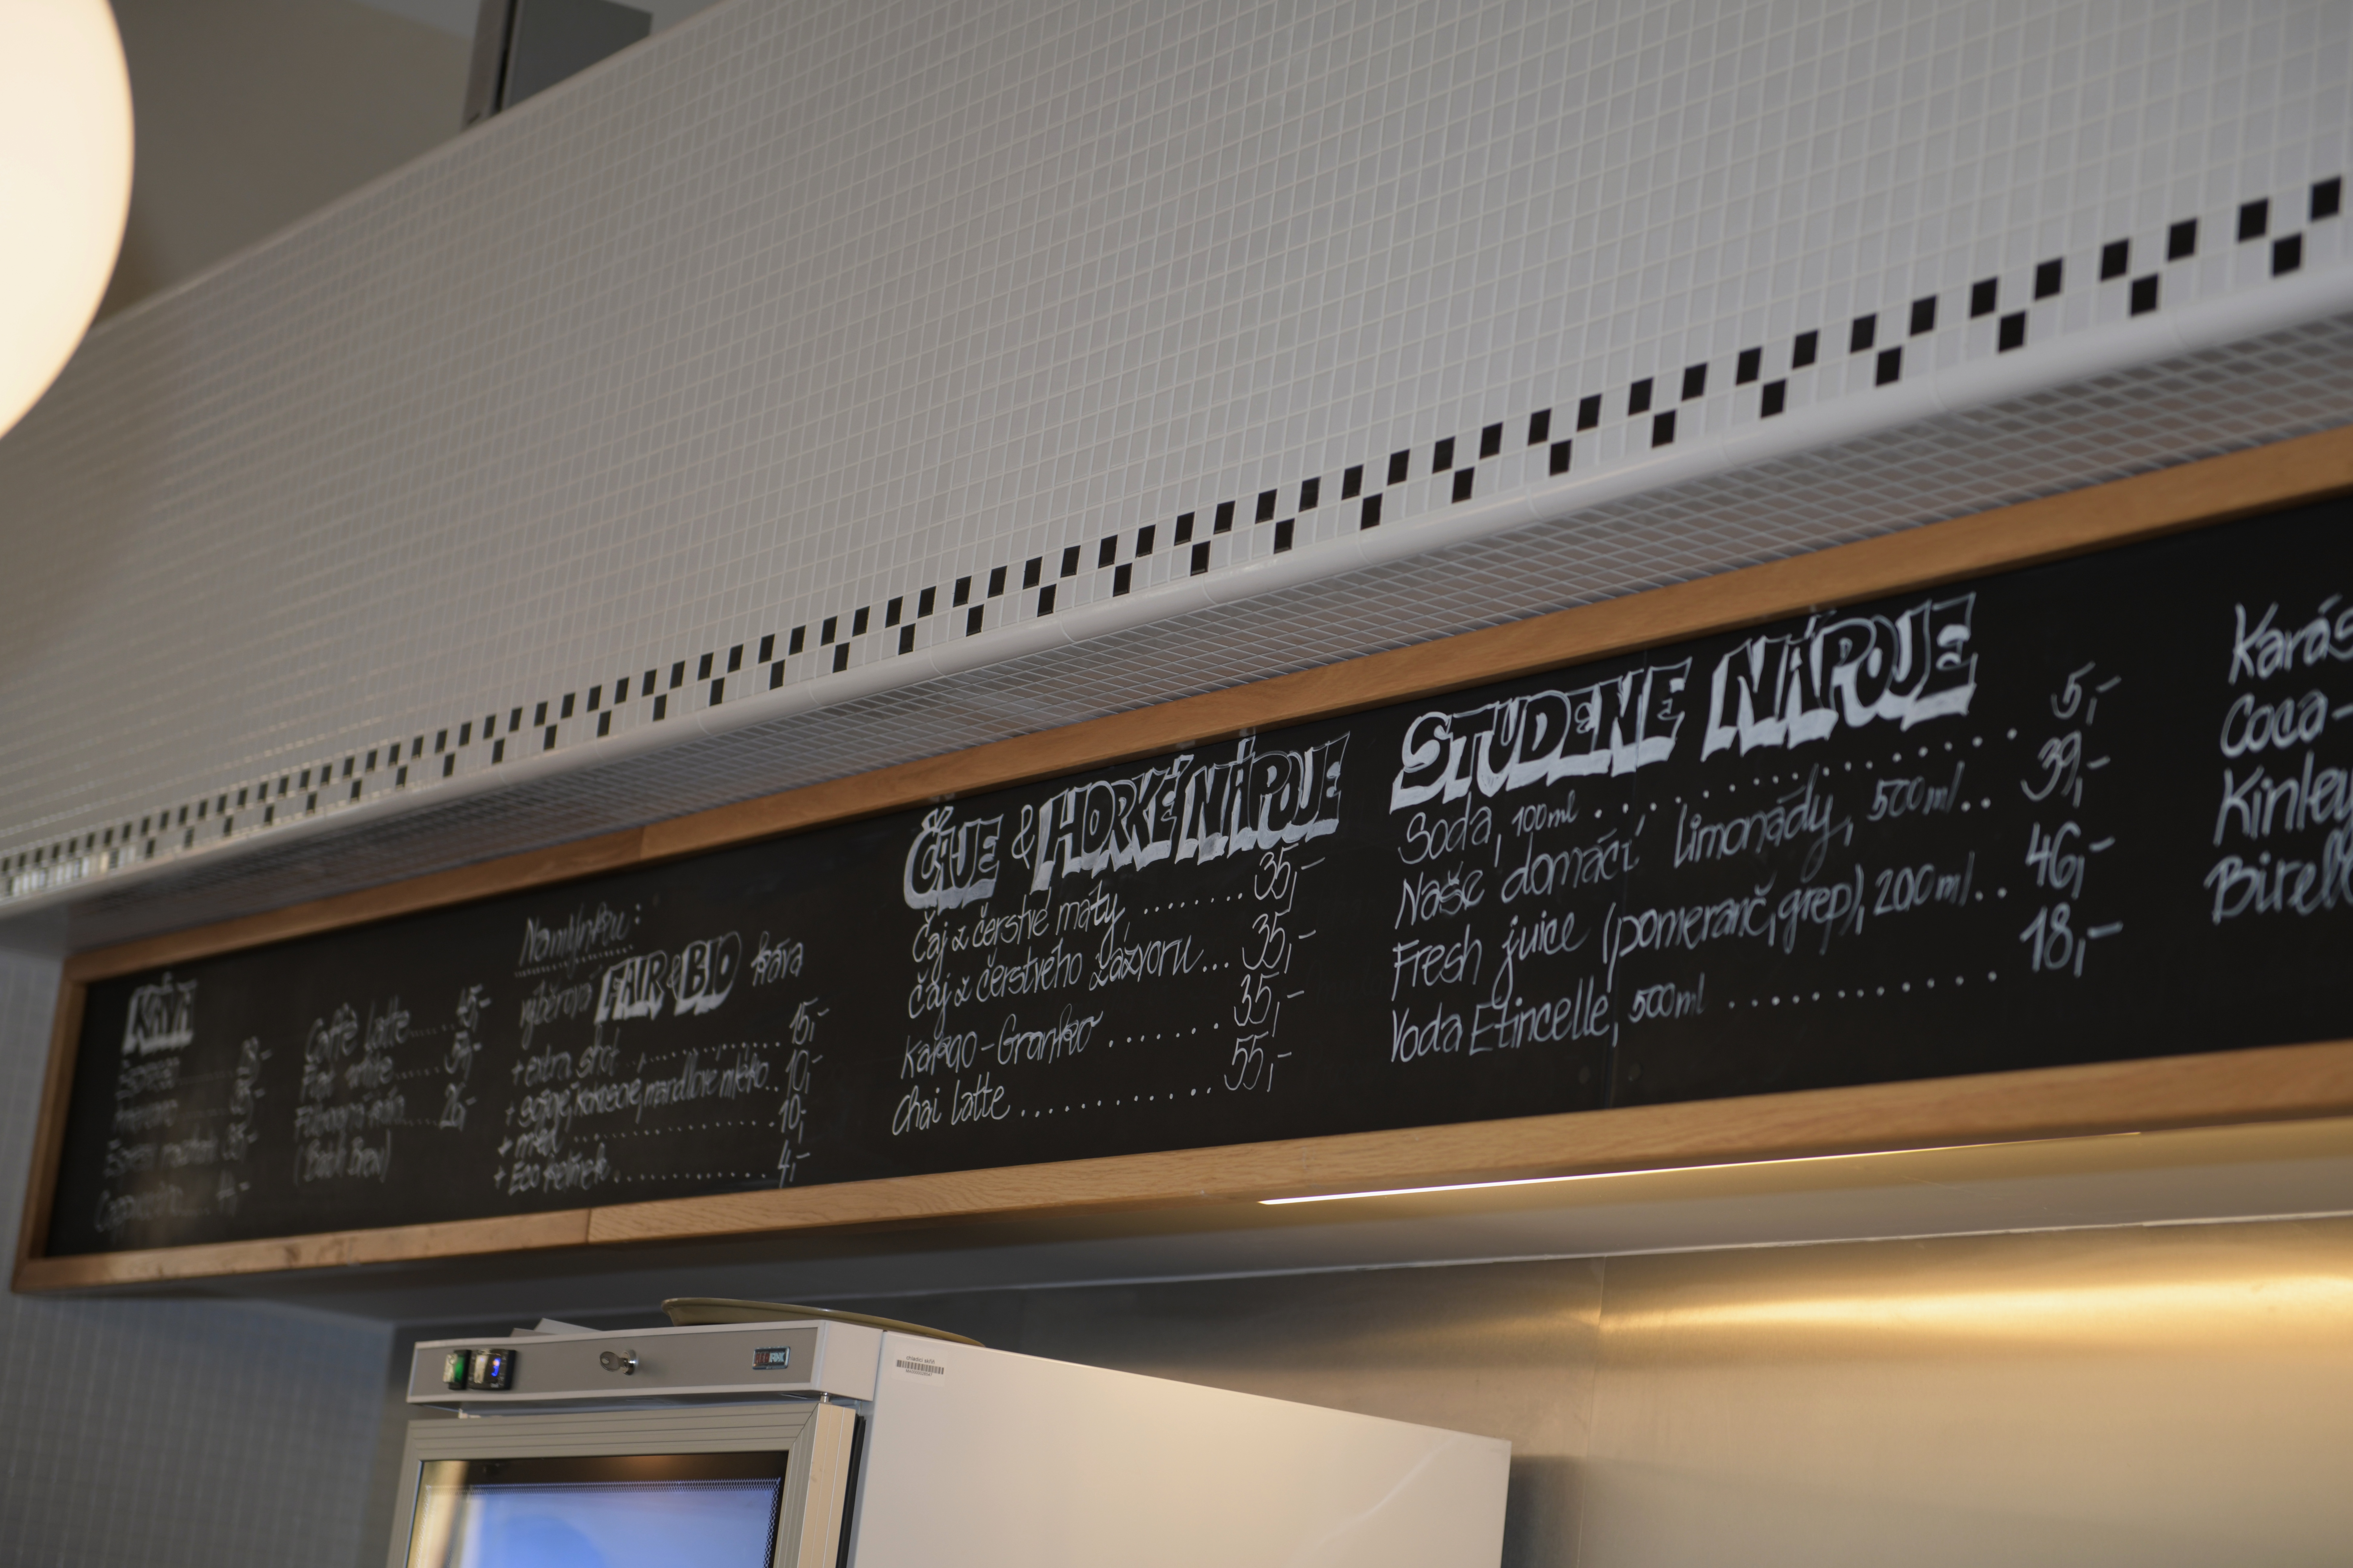 KÁVA
Espresso
Espresso macchiato 35,-
Cappuccino
Caffè latte 45,-
Flat white
(Batch Brew)
Na mlýnku:
výběrová FAIR & BIO káva
+ extra shot 15,-
+ sojové, kokosové, mandlové mléko.. 10,-
+ med 10,-
+ Eco kelímek 4,-
ČAJE & HORKÉ NÁPOJE
Čaj z čerstvé máty ........ 35,-
Čaj z čerstvého zázvoru... 35,-
Kakao-Granko ...... 35,-
Chai latte ............ 55,-
STUDENÉ NÁPOJE
Soda, 100ml ................ 5,-
Naše domácí limonády, 500ml.. 39,-
Fresh juice (pomeranč, grep), 200ml.. 46,-
Voda Etincelle, 500ml ............ 18,-
Karás
Coca-
Kinley
Birell